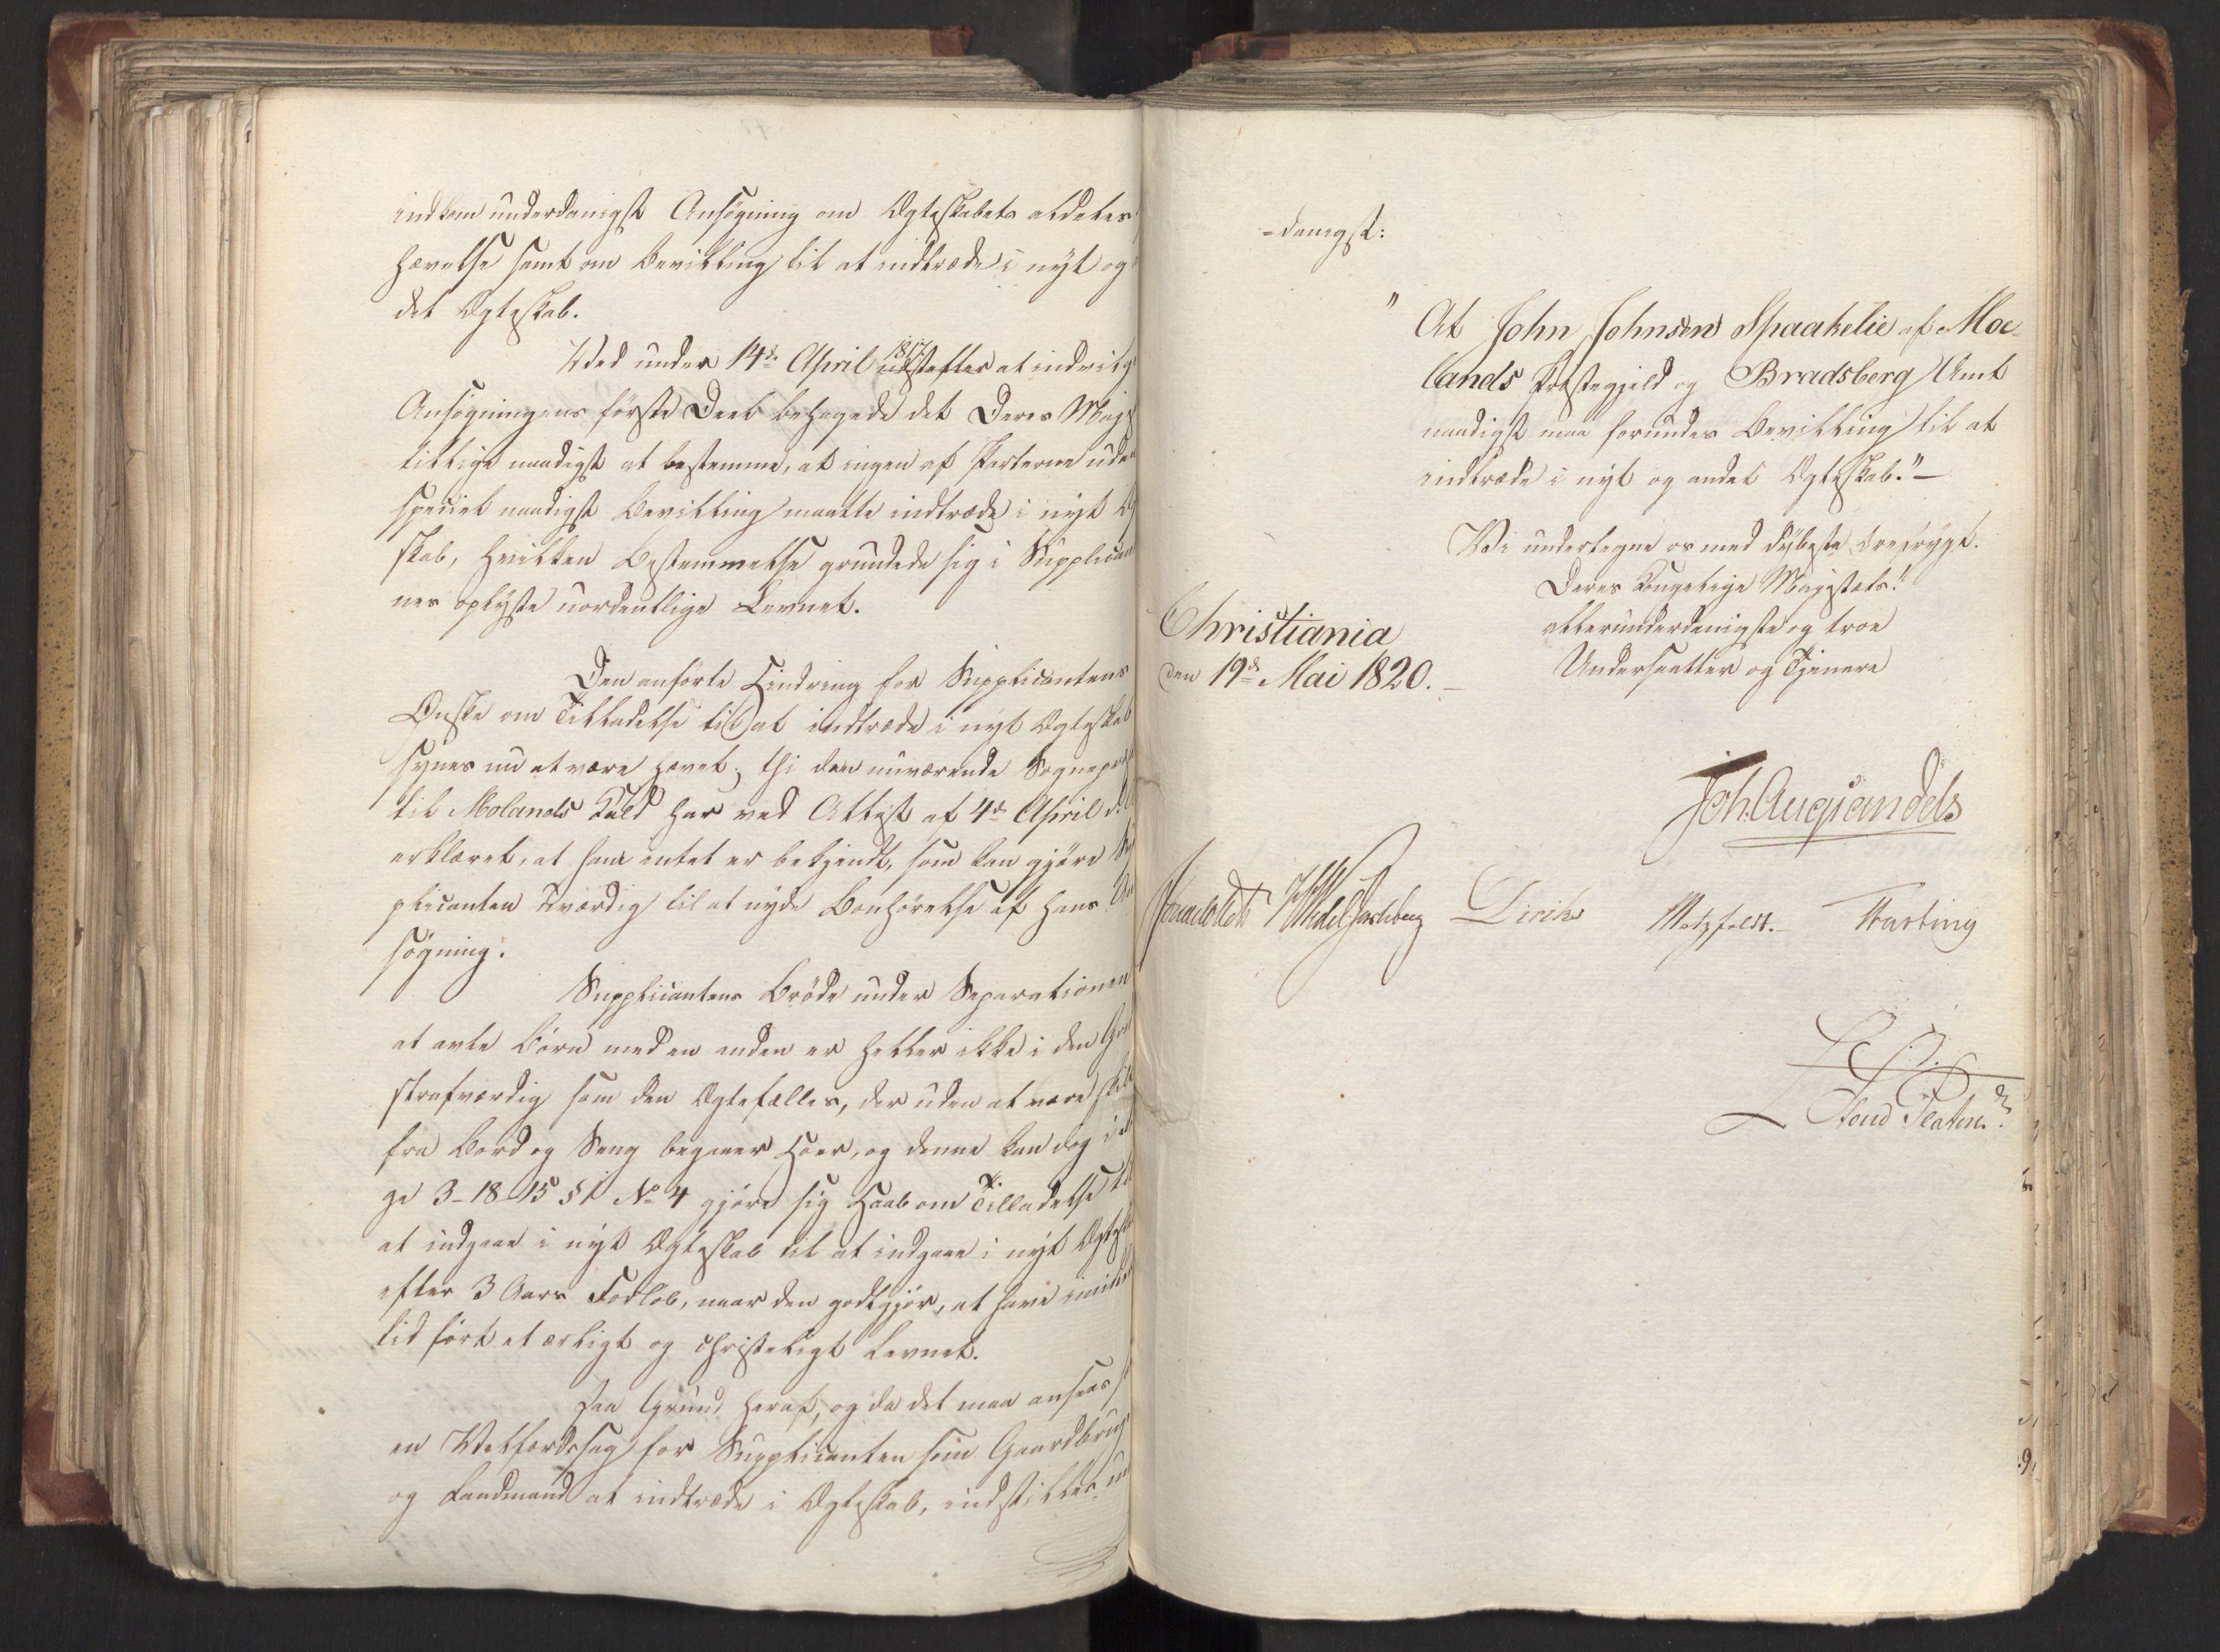 indkom underdanigst Ansøgning om Ægteskabets aldeles
Hævelse samt om Bevilling til at indtræde i nyt og
det Ægteskab.
Ved under 14de April 1817 at indvilge
Ansøgningens første Deel behagede det Deres Maje
allernaadigst at bestemme, at ingen af Parterne uden
speciel naadigst Bevilling maatte indtræde i nyt Æg
skab, hvilken Bestemmelse grundede sig i Supplican
nes oplyste uordentlige Levnet.
Den anførte Hindring for Supplicantens
Ønske om Tilladelse til at indtræde i nyt Ægteskab
synes nu at være hævet; thi den nuværende Sognepræst
til Molands Kald har ved Attest af 4de April d. A.
erklæret, at ham intet er bekjendt, som kan gjøre Sup
plicanten uværdig til at nyde Bønhørelse af hans An
søgning.
Supplicantens Brøde under Separationen
at avle Børn med en anden er heller ikke i den Grad
strafværdig som den Ægtefælles, der uden at være skilt
fra Bord og Seng begaaer Hoer, og denne kan dog iføl
ge 3-18-15 § 1 No 4 gjøre sig Haab om Tilladelse til
at indgaae i nyt Ægteskab til at indgaae i nyt Ægteskab
efter 3 Aars Forløb, naar den godtgjør, at have imidler
tid ført et ærligt og christeligt Levnet.
Paa Grund heraf, og da det maa ansees s
en Velfærdssag for Supplicanten som Gaardbrug
og Landmand at indtræde i Ægteskab, indstilles un
-danigst:
"At John Johnsen Spaakelie af Moe-
lands Præstegjeld og Bradsberg Amt
naadigst maa forundes Bevilling til at
indtræde i nyt og andet Ægteskab."—
Vi undertegne os med dybeste Ærefrygt.
Deres Kongelige Majestæts!
allerunderdanigste og troe
Undersaatter og Tjenere
Christiania
den 19de Mai 1820.—
Joh. Aug Sandels
Sommerhielm HWedel Jarlsberg Diriks Motzfeldt. Fasting